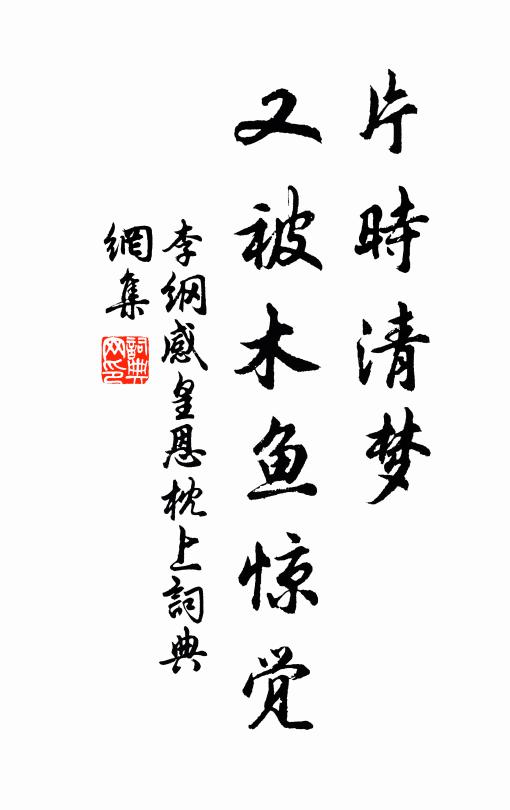 片時清梦
又被木鱼惊觉
李纲感皇恩枕上詞典
網集
詞典
网印